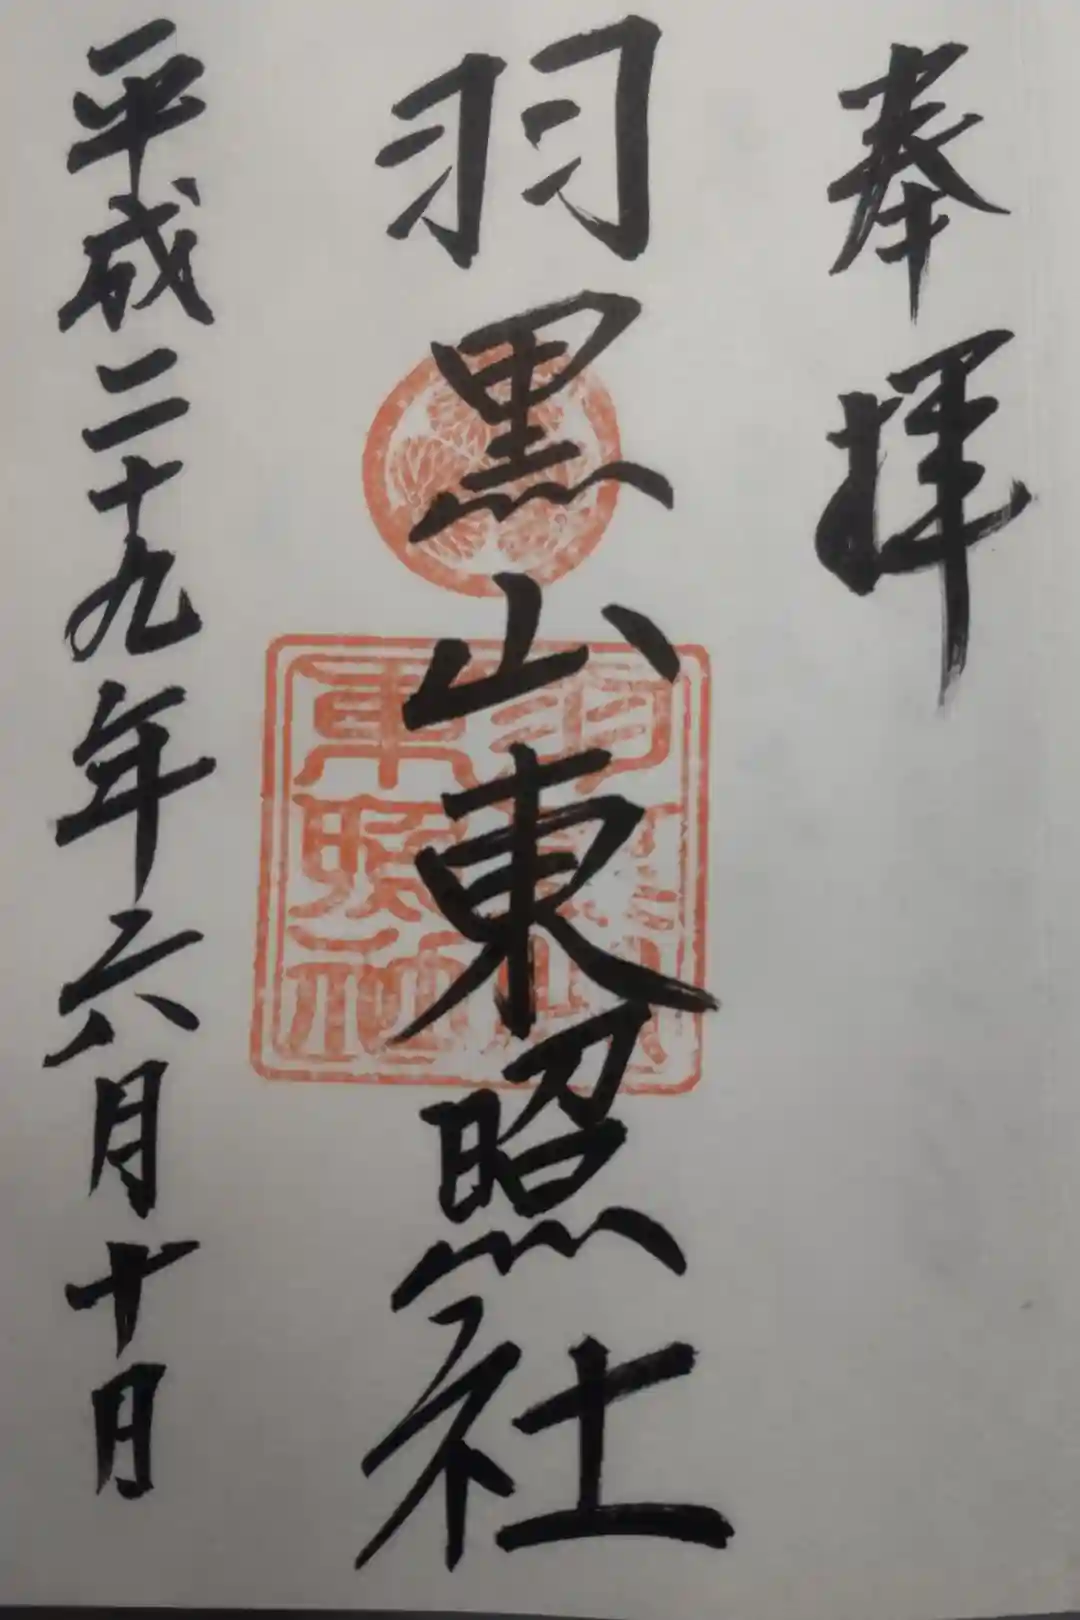 奉拝
羽黒山東照社
羽黒山
東照社
平成二十九年六月十日